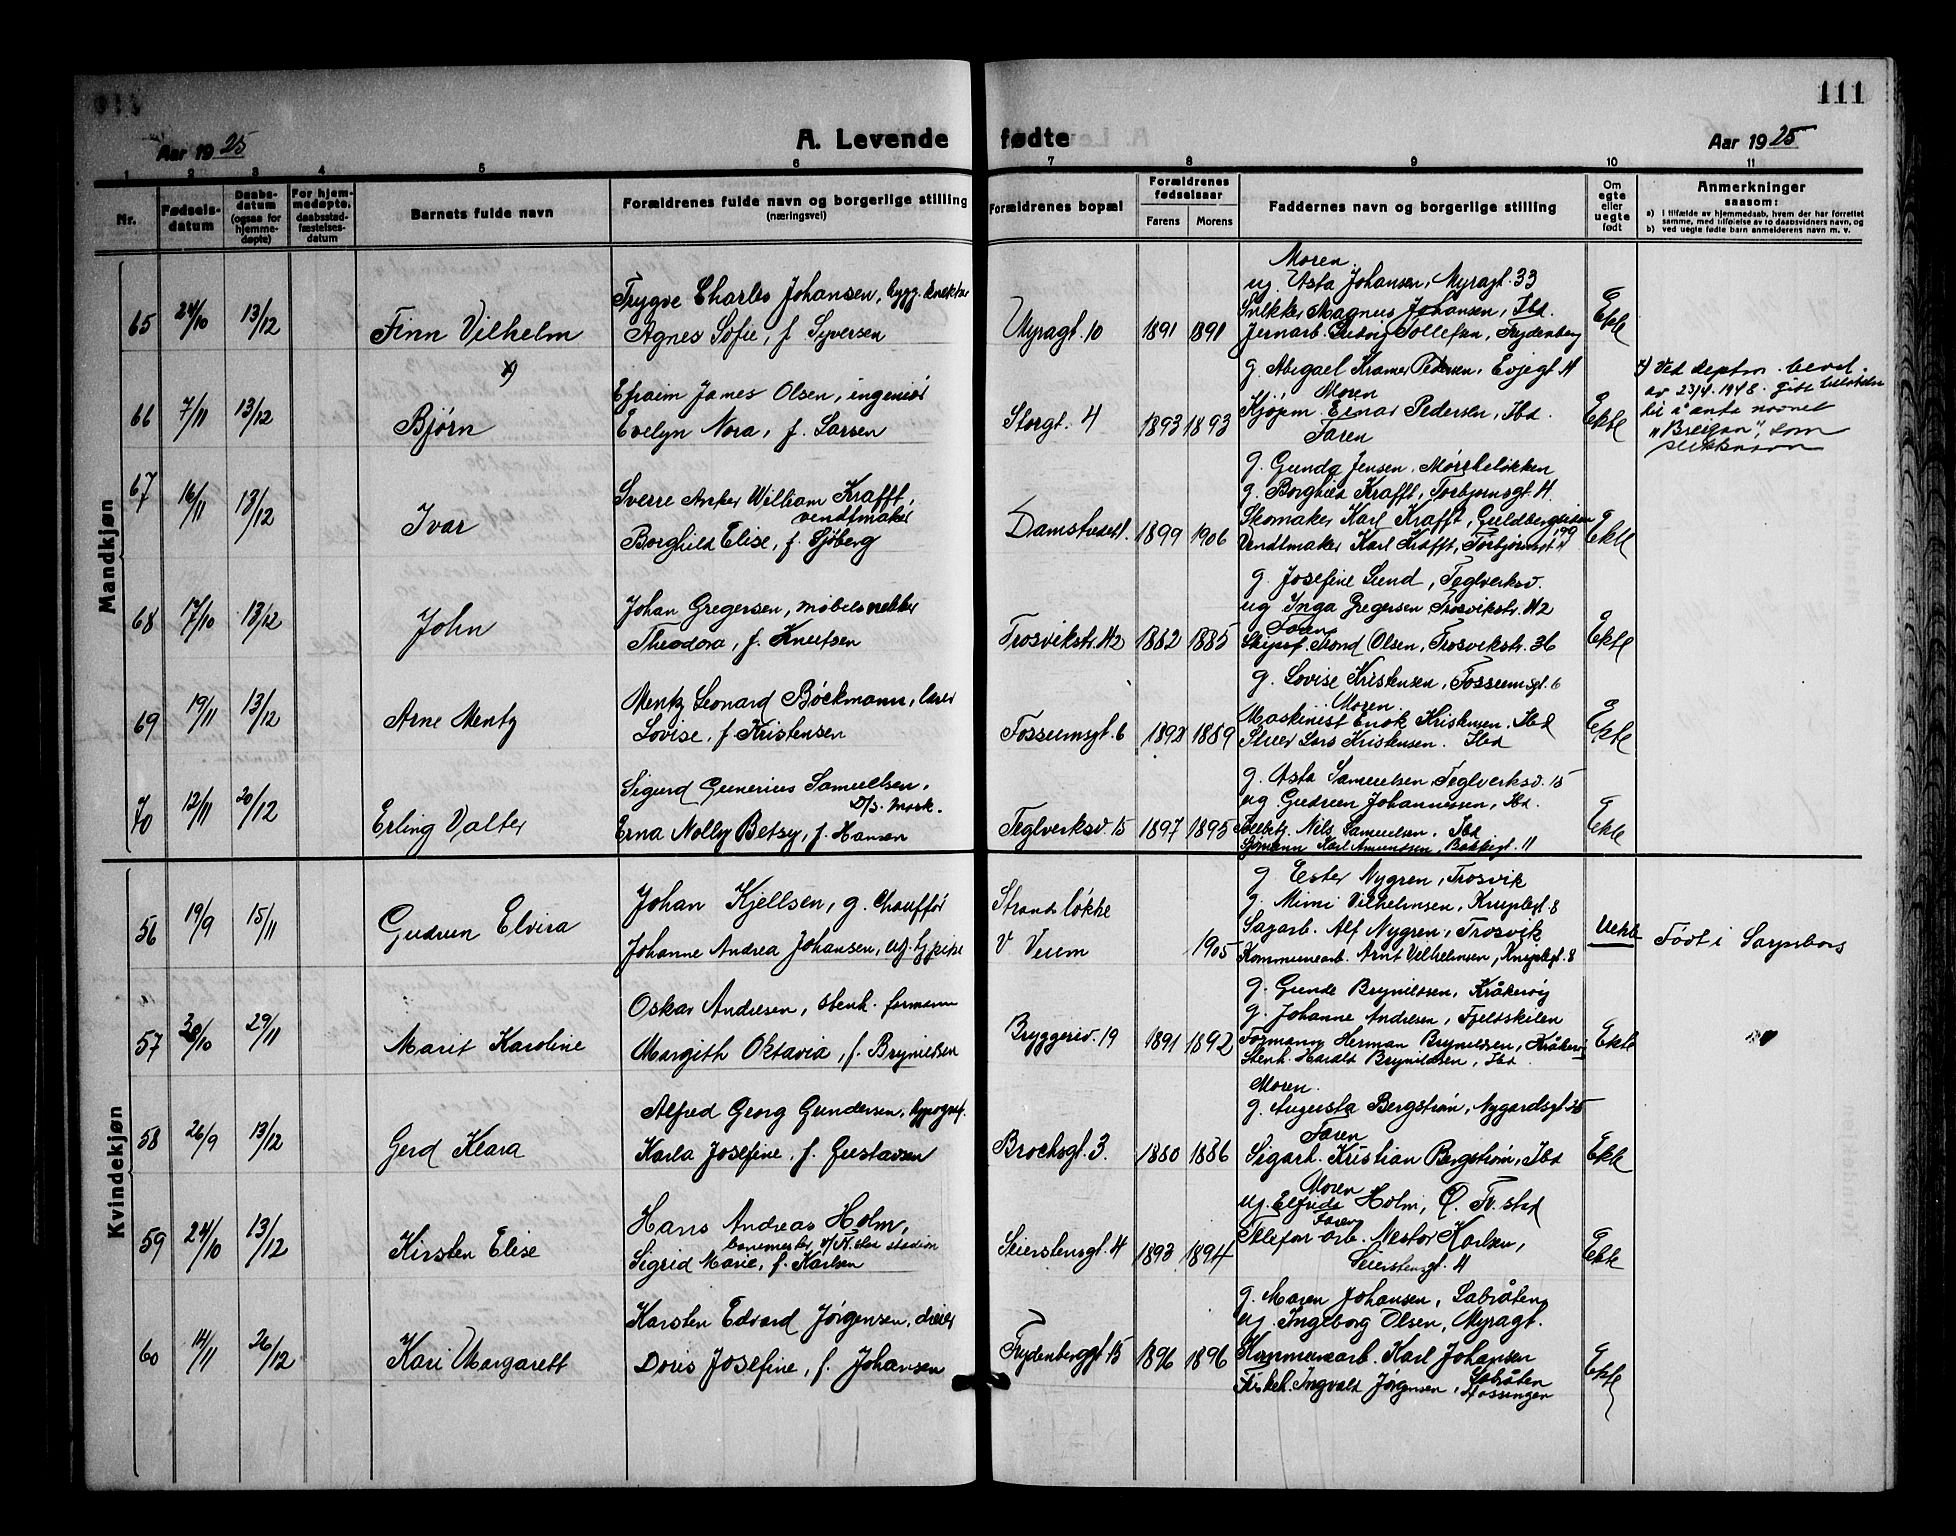 111
Aar 1925
A. Levende fødte
Aar 1925
1 2 3 4 5 6 7 8 9 10 11
Nr.
Fødsels-
datum
Daabs-
datum
(ogsaa for
hjemme-
døpte)
For hjem-
medøpte,
daabsstad-
fæstelses-
datum
Barnets fulde navn
Forældrenes fulde navn og borgerlige stilling
(næringsvei)
Forældrenes bopæl
Forældrenes
fødselsaar
Farens Morens
Faddernes navn og borgerlige stilling
Om
egte
eller
uegte
født
Anmerkninger
saasom:
a) i tilfælde av hjemmedaab, hvem der har forrettet
samme, med tilføielse av to daabsvidners navn, og
b) ved uegte fødte barn anmelderens navn m. v.
Mandkjøn
65 24/10 13/12 Finn Vilhelm
Trygve Charles Johansen, bygg.
Agnes Sofie, f. Syversen
Myragt. 10 1891 1891
Moren
ug. Asta Johansen, Myragt. 33
Magnus Johansen, Ibd.
Jernarb. Ludvig Tollefsen, Frydenberg
Ekte
66 7/11 13/12 x) Bjørn
Efraim James Olsen, ingeniør
Evelyn Nora, f. Larsen
Storgt. 4 1893 1893
g. Abigael Kramer Pedersen, Evjegt. 4
Moren
Kjøpm. Einar Pedersen, Ibd.
Faren
Ekte
x) Ved deptm. bevil.
av 23/4. 1948. gitt tillatelse
til å anta navnet
"Bregan", som
slektsnavn
67 16/11 13/12 Ivar
Sverre Anker William Krafft,
vendtmaker
Borghild Elise, f. Sjøberg
Damstredet. 1899 1906
g. Gunda Jensen, Mørcheløkken
g. Borghild Krafft, Torbjørnsgt. 4.
Skomaker Karl Krafft, Guldbergsiden 199
Vendtmaker Karl Krafft, Torbjørnsgt. 4
Ekte
68 17/10 13/12 John
Johan Gregersen, møbelsnekker
Theodora, f. Knutsen
Trosvikstr. 42 1882 1885
g. Josefine Lund, Teglverksv.
ug Inga Gregersen Trosvikstr. 42
Faren
Skipsf. Trond Olsen, Trosvikstr. 36
Ekte
69 19/11 13/12 Arne Mentz
Mentz Leonard Bøckmann, lærer
Lovise, f. Kristensen
Fossumsgt. 6 1892 1889
g. Lovise Kristensen, Fossumsgt. 6
Moren.
Maskinist Enok Kristensen. Ibd
Stuer Lars Kristensen. Ibd
Ekte
70 12/11 20/12 Erling Valter
Sigurd Gunerius Samuelsen,
D/S. Mask.
Erna Nolly Betsy, f. Hansen
Teglverksv 15 1897 1895
g. Asta Samuelsen Teglverksv. 15
ug Gudrun Johannessen, Ibd.
Nils Samuelsen. Ibd
Sjømann Karl Amundsen, Bakkegt. 11
Ekte
Kvindekjøn
56 19/9 15/11 Gudrun Elvira
Johan Kjellsen, g. Chauffør
Johanne Andrea Johansen, ug. tj.pike
Strandløkke
v. Veum 1905
g. Ester Nygren, Trosvik
g. Mimi Vilhelmsen, Kruplegt. 8
Sagarb. Alf Nygren, Trosvik
Kommunearb. Arnt Vilhelmsen, Kruplegt. 8
Uekte
Født i Sarpsborg
57 30/10 29/11 Marit Karoline
Oskar Andresen, stenh. formann
Margith Oktavia, f. Brynildsen
Bryggeriv. 19 1891 1892
g. Gunda Brynildsen, Kråkerøy
g. Johanne Andresen, Fjeldskilen
Formann Herman Brynildsen, Kråkerøy
Stenh. Harald Brynildsen, Ibd
Ekte
58 26/9 13/12 Gerd Klara
Alfred Georg Gundersen, typograf.
Karla Josefine, f. Gustavsen
Brochsgt. 3. 1880 1886
Moren.
g. Augusta Bergstrøm, Nygardsgt. 25
Faren
Sigarb. Kristian Bergstrøm, Ibd
Ekte
59 24/10 13/12 Kirsten Elise
Hans Andreas Holm,
banemester v/ Fr.stad stadion
Sigrid Marie, f. Karlsen
Seierstensgt. 4 1893 1894
Moren
ug. Elfrida Holm, Ø. Fr.stad
Faren
Telefon arb. Nestor Karlsen,
Seierstensgt. 4
Ekte
60 14/11 26/12 Kari Margarett
Karsten Edvard Jørgensen, dreier
Doris Josefine, f. Johansen
Frydenberggt 15 1896 1896
g. Maren Johansen, Labråten
ug. Ingeborg Olsen, Myragt.
Kommunearb. Karl Johansen
Labråten
Fiskeh. Ingvald Jørgensen, Mossingen
Ekte